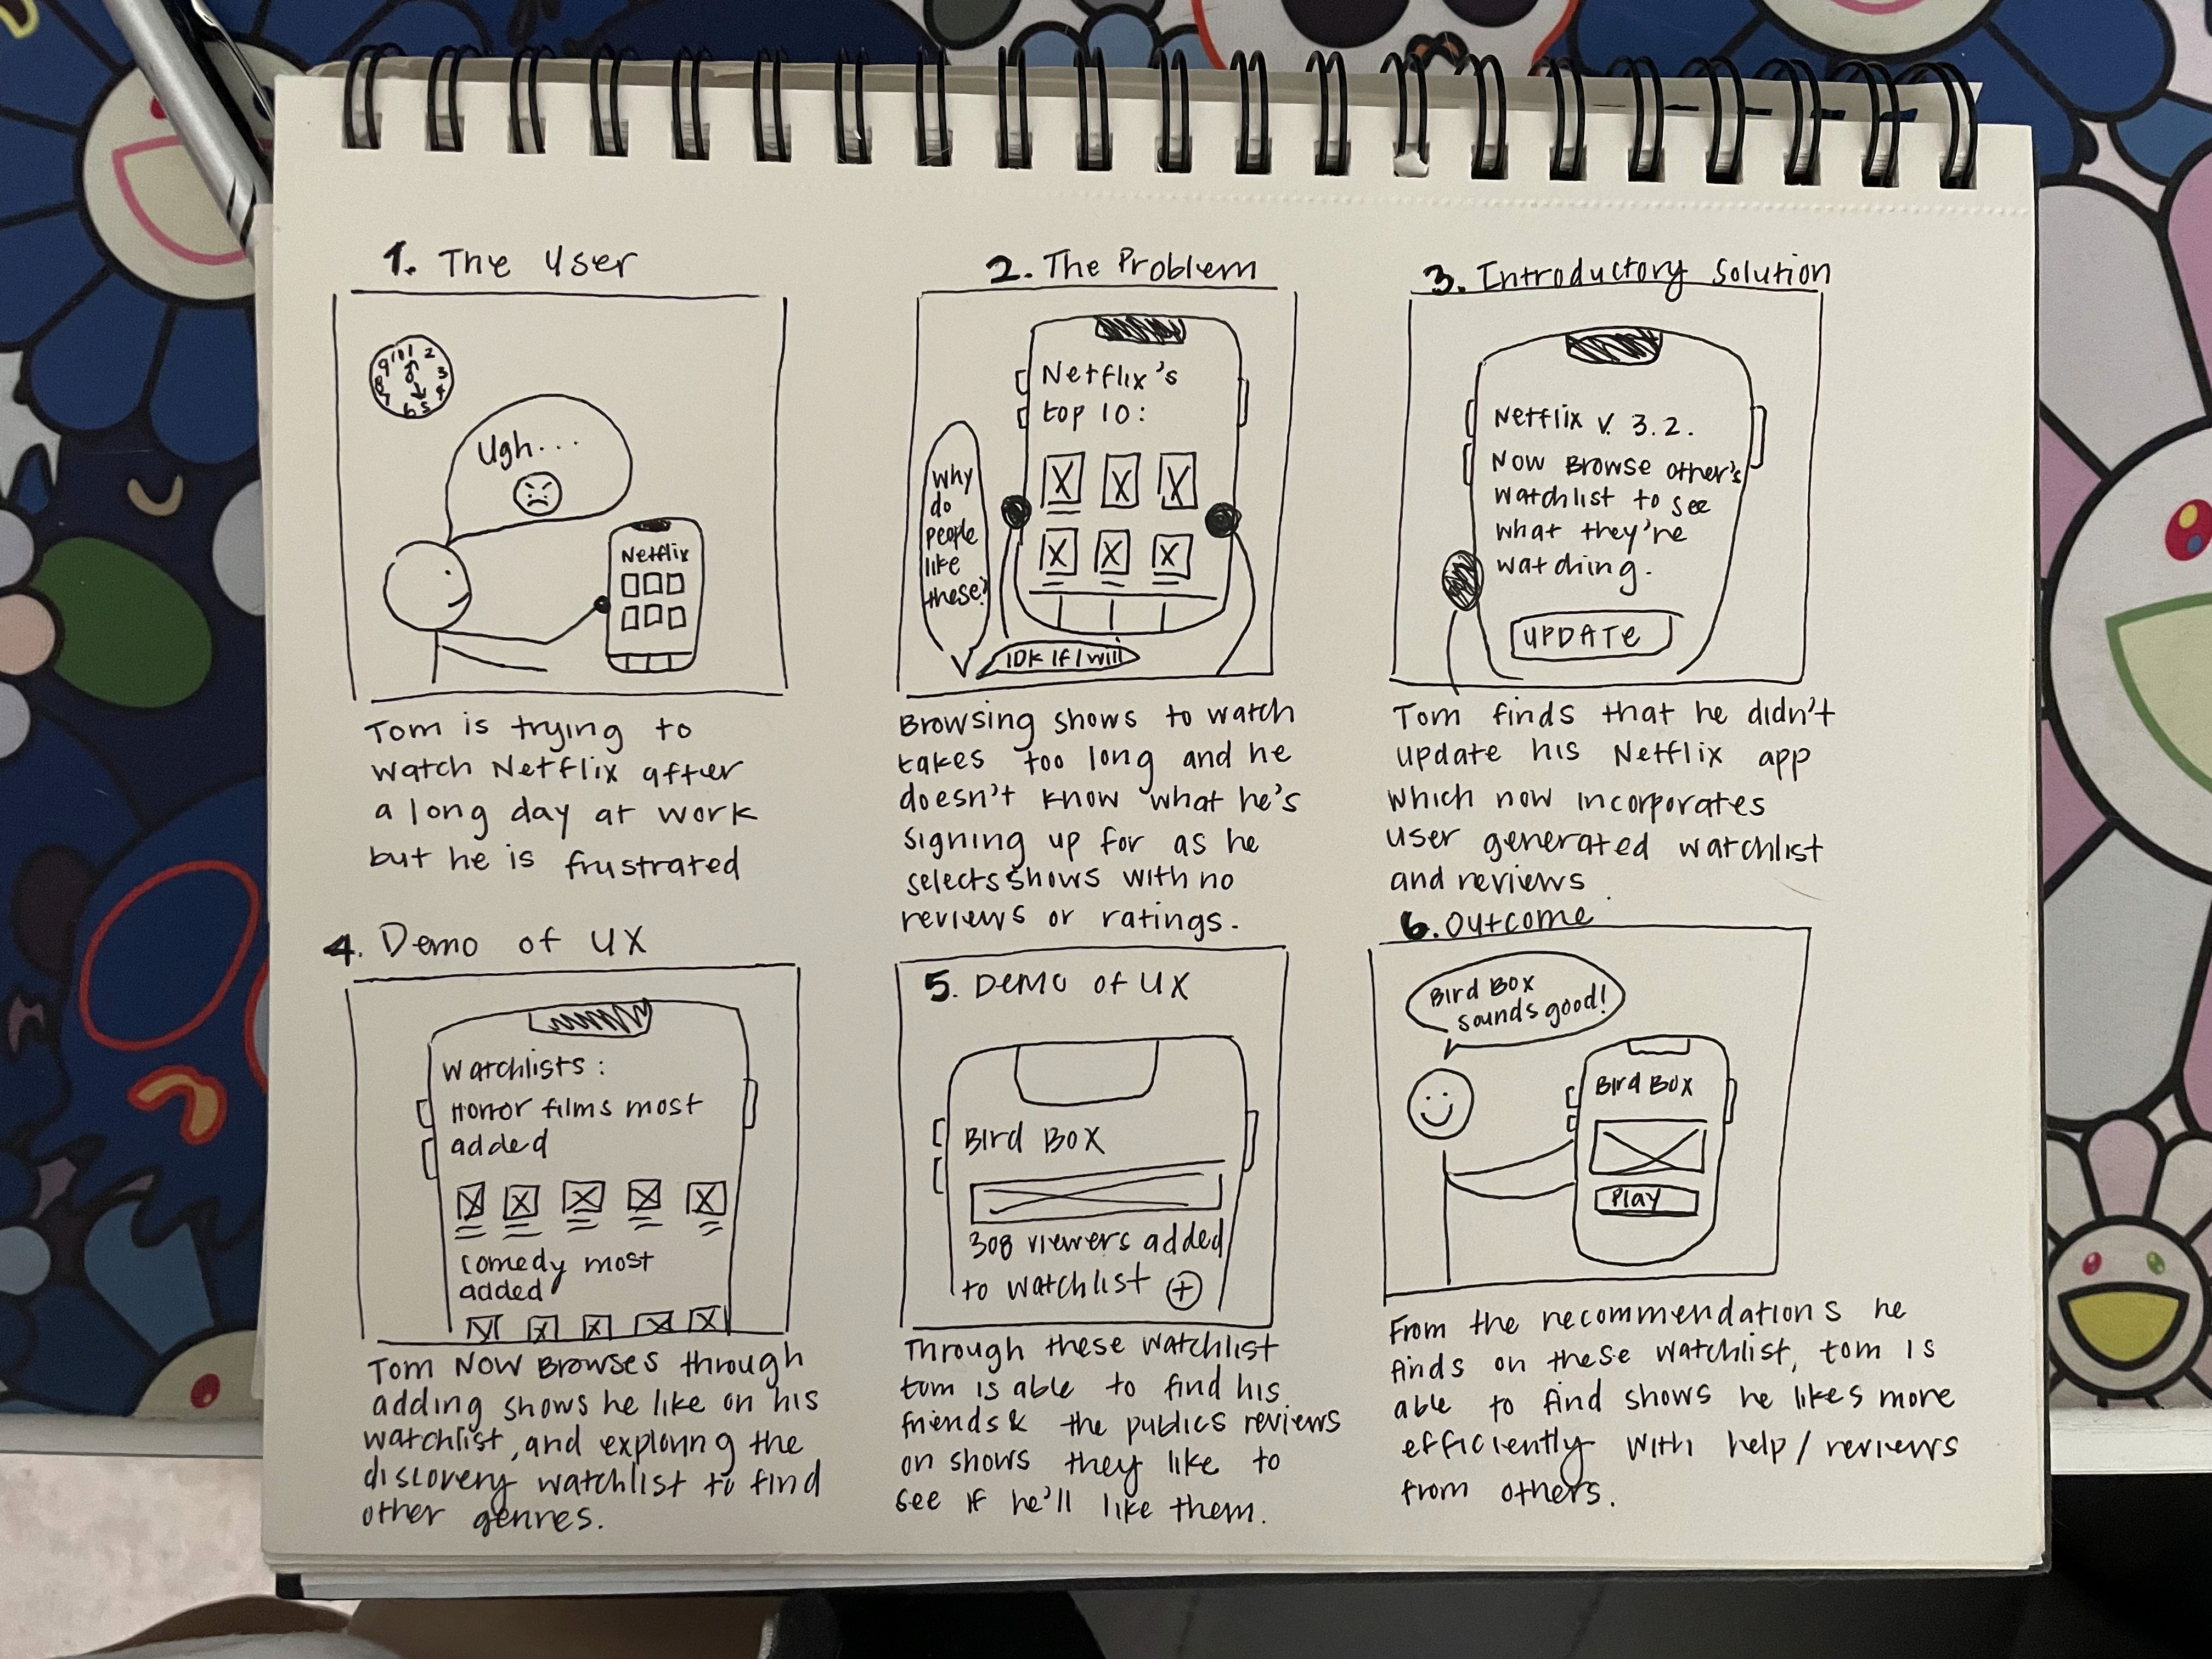 1. The User
9 10 1 2
8 3
7 6 5 4
Ugh...
Netflix
Tom is trying to
watch Netflix after
a long day at work
but he is frustrated
2. The Problem
Netflix's
top 10:
Why
do
people
like
these?
IDK if I will
Browsing shows to watch
takes too long and he
doesn't know what he's
signing up for as he
selects shows with no
reviews or ratings.
3. Introductory Solution
Netflix v. 3.2.
Now Browse other's
watchlist to see
what they're
watching.
UPDATE
Tom finds that he didn't
update his Netflix app
which now incorporates
user generated watchlist
and reviews.
4. Demo of UX
Watchlists:
Horror films most
added
comedy most
added
Tom Now Browses through
adding shows he like on his
watchlist, and exploring the
discovery watchlist to find
other genres.
5. Demo of UX
Bird Box
308 viewers added
to watchlist +
Through these watchlist
tom is able to find his
friends & the publics reviews
on shows they like to
see if he'll like them.
6. Outcome
Bird Box
sounds good!
Bird Box
Play
From the recommendations he
finds on these watchlist, tom is
able to find shows he likes more
efficiently with help/reviews
from others.